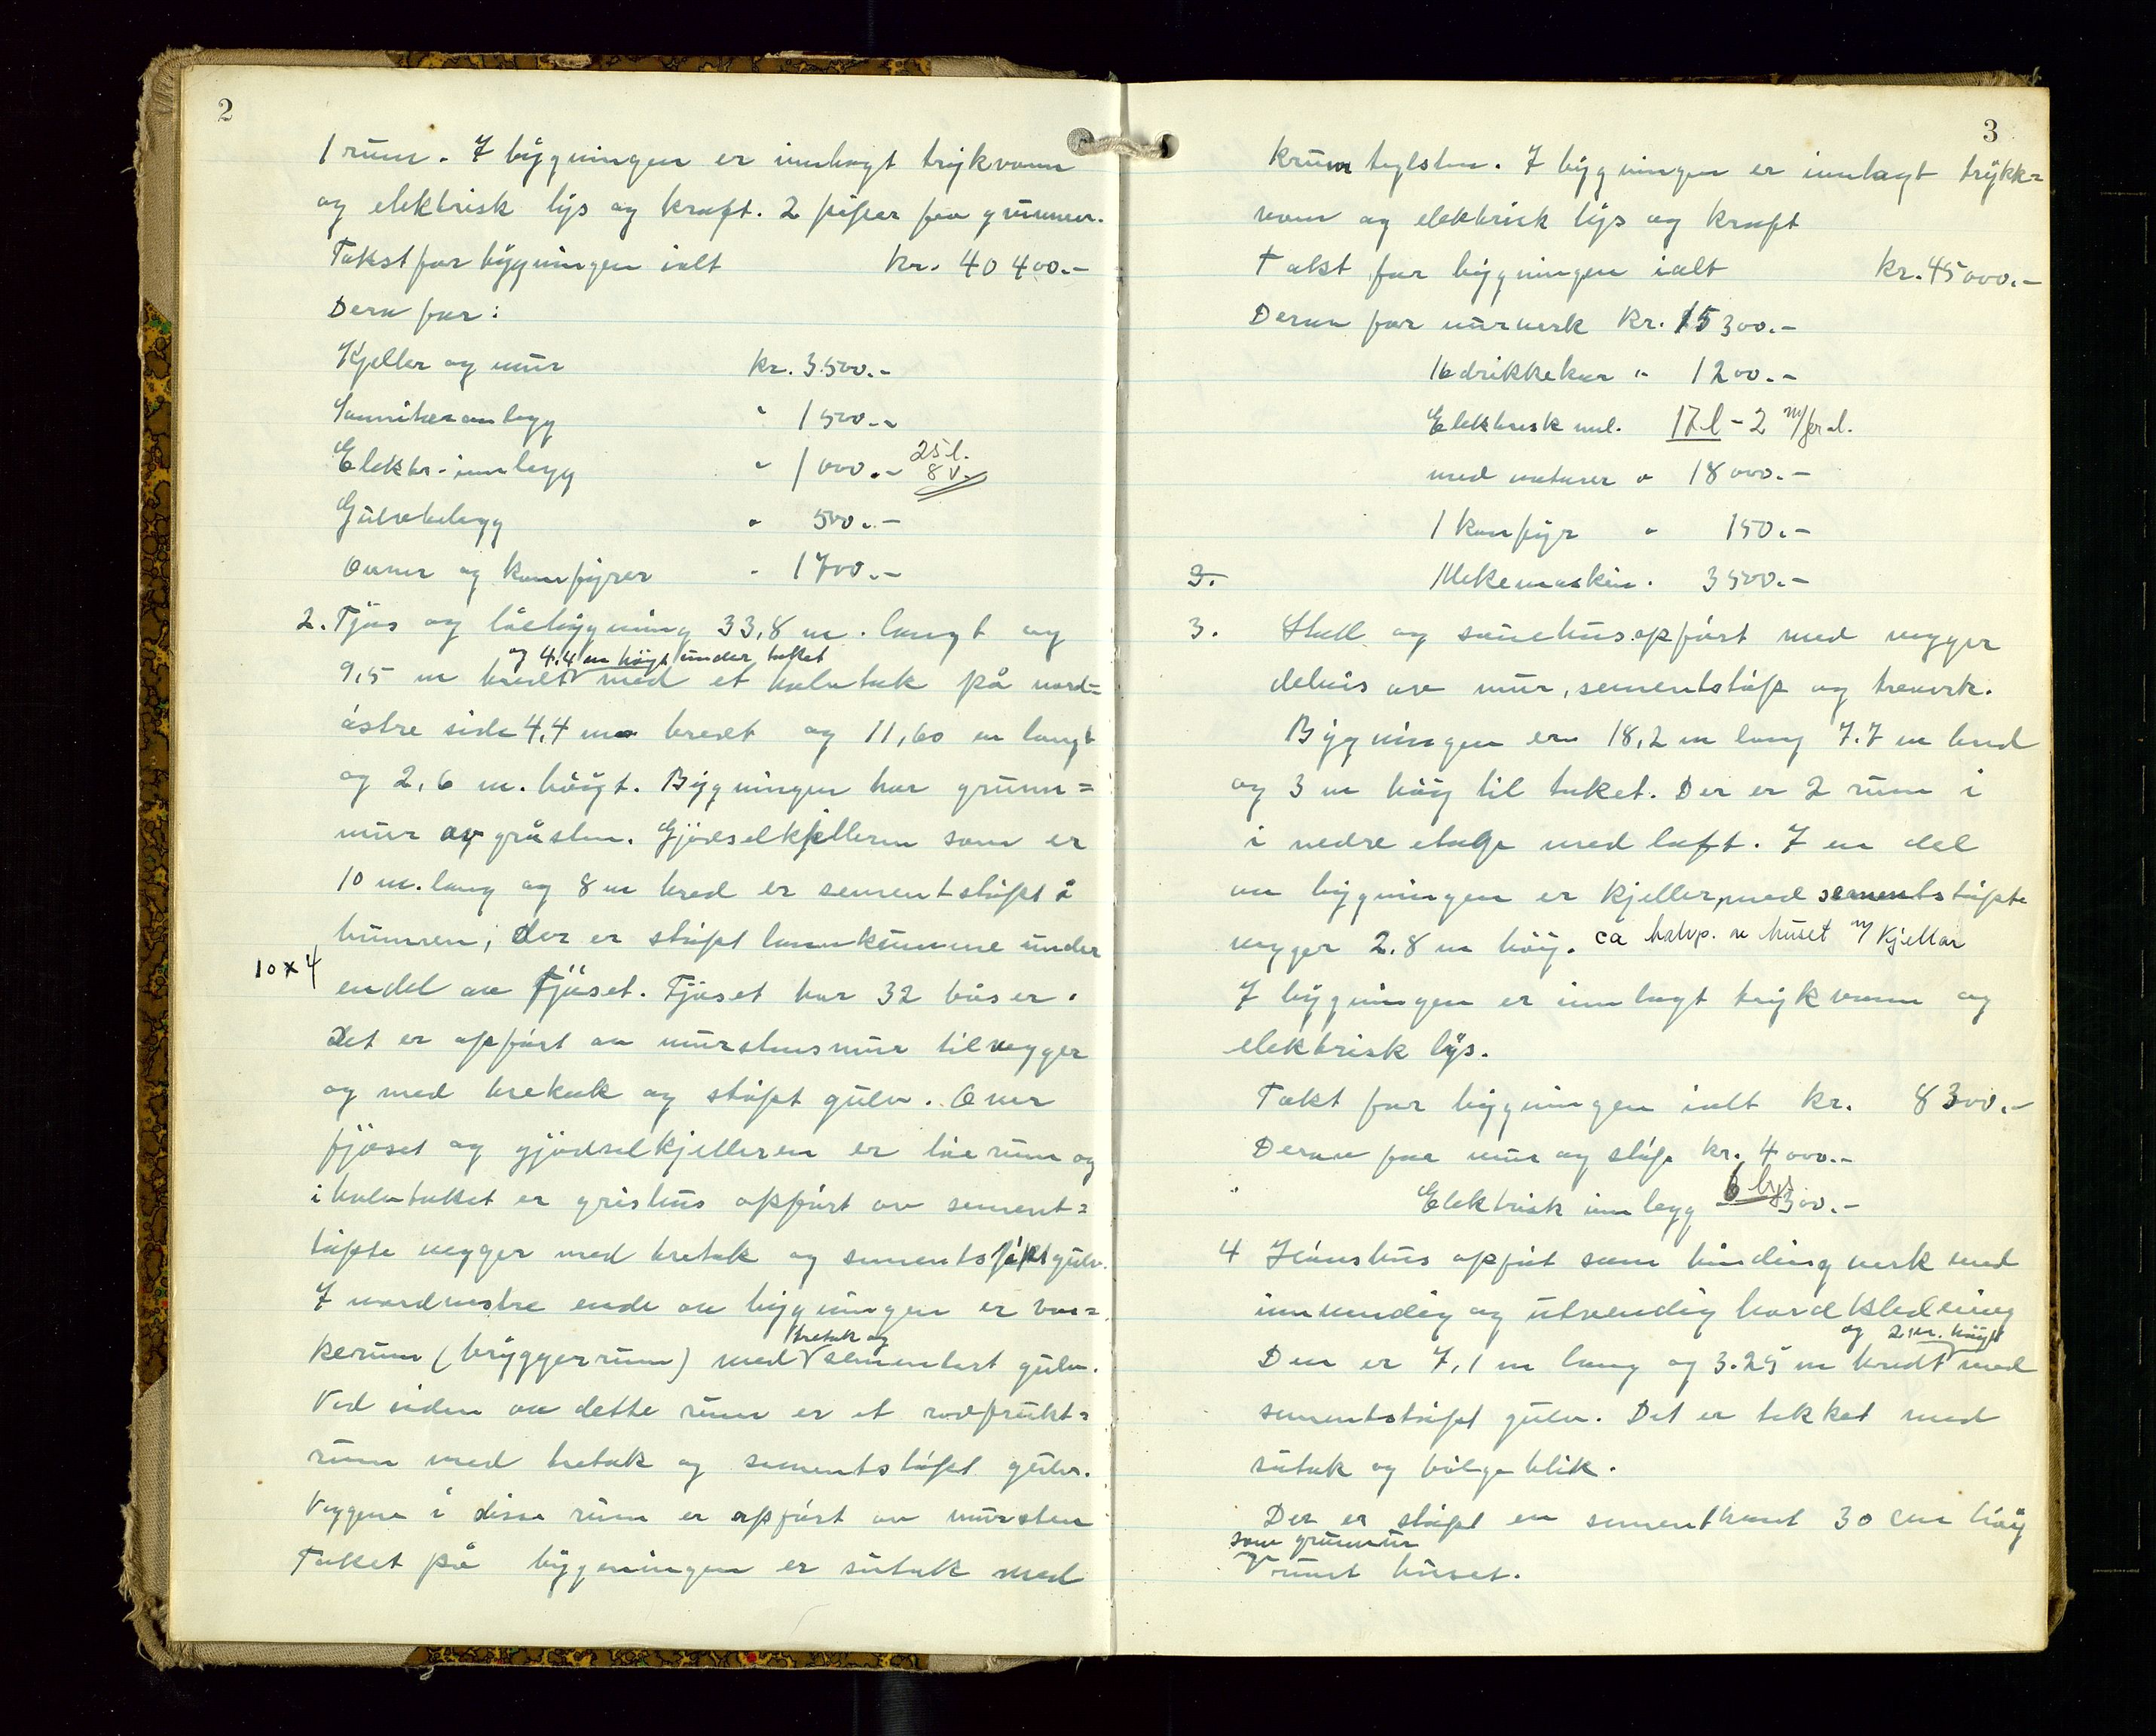 2
1 rum. I bygningen er innlagt trykvann
og elektrisk lys og kraft. 2 piper fra grunnen.
Takst for bygningen ialt kr. 40 400.-
Derav for:
Kjeller og mur kr. 3.500.-
Sannitæranlegg " 1 500.-
Elektr. innlegg " 1 000.- 25 l.
8 v.
Gulvbelegg " 500.-
Ovner og komfyrer " 1700.-
2. Fjös og låebygning 33,8 m. langt og
og 4.4 m högt under taket
9,5 m bredt med et halvtak på nord=
östre side 4,4 m bredt og 11,60 m langt
og 2,6 m. högt. Bygningen har grunn=
mur av gråsten. Gjödselkjelleren som er
10 m. lang og 8 m bred er sementstöpt i
bunnen, der er stöpt lannkumme under
10 x 4
endel av fjöset. Fjöset har 32 båser.
Det er opfört av murstensmur til vegger
og med tretak og stöpt gulv. Over
fjöset og gjödselkjelleren er låerum og
i halvtaket er grishus opfört av sement=
töpte vegger med tretak og sementstöpt gulv.
I nordvestre ende av bygningen er vas=
tretak og
kerum (bryggerrum) med sementert gulv.
Ved siden av dette rum er et rodfrukt=
rum med tretak og sementstöpt gulv.
Veggene i disse rum er opfört av mursten
Taket på bygningen er sutak med
3
krum teglsten. I bygningen er innlagt trykk=
vann og elektrisk lys og kraft
Takt for bygningen ialt kr. 45 000.-
Derav for murverk kr. 15 300.-
16 drikkekar " 1 200.-
Elektrisk innl. 17 l - 2 m/ l.
med motorer " 18 000.-
1 komfyr " 150.-
3.
1 Melkemaskin. 3500.-
3. Stall og sauehus opfört med vegger
delvis av mur, sementstöp og treverk.
Bygningen er 18,2 m lang 7.7 m bred
og 3 m höy til taket. Der er 2 rum i
i nedre etage med loft. I en del
av bygningen er kjeller, med sementstöpte
vegger 2.8 m höy. ca halvp. av huset m/ kjellar
I bygningen er innlagt trykvann og
elektrisk lys.
Takt for bygningen ialt kr. 8 300.-
Derav for mur og stöp kr. 4 000.-
6 lys
" Elektrisk innlegg - 300.-
4 Hönshus opföt som bindingverk med
innvendig og utvendig bordkledning
og 2 m. högt
Den er 7,1 m lang og 3.25 m bredt med
sementstöpt gulv. Det er tekket med
sutak og bölgeblik.
Der er stöpt en sementkant 30 cm höy
som grunmur
rundt huset.